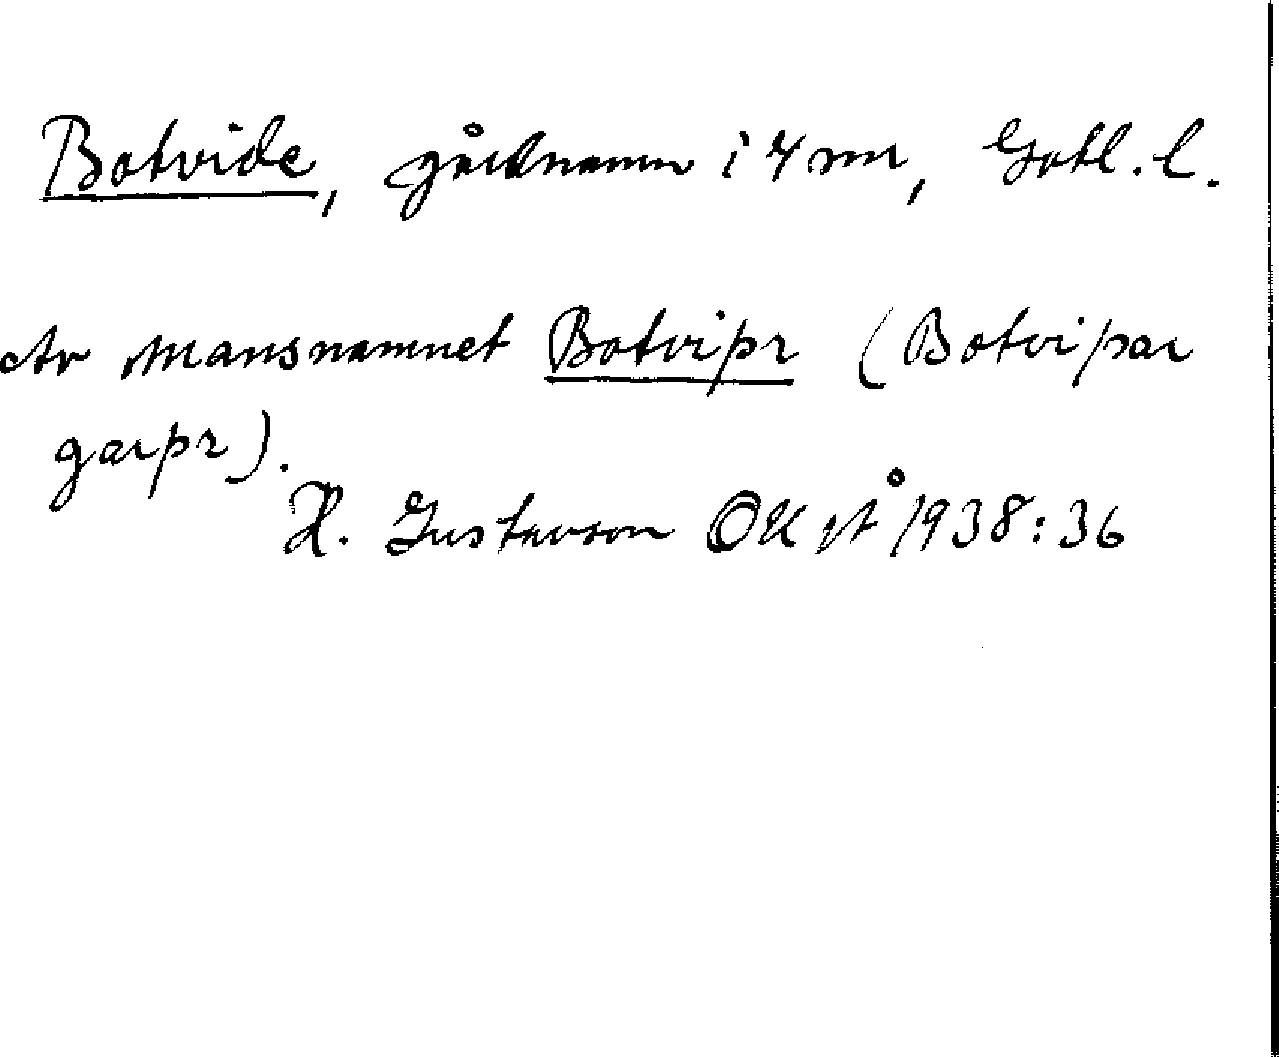 Botvide, gårdnamn i 4 snr, Gotl. l.
Av mansnamnet Botviþr (Botviþar
garþr).
H. Gustavson OUÅ 1938:36